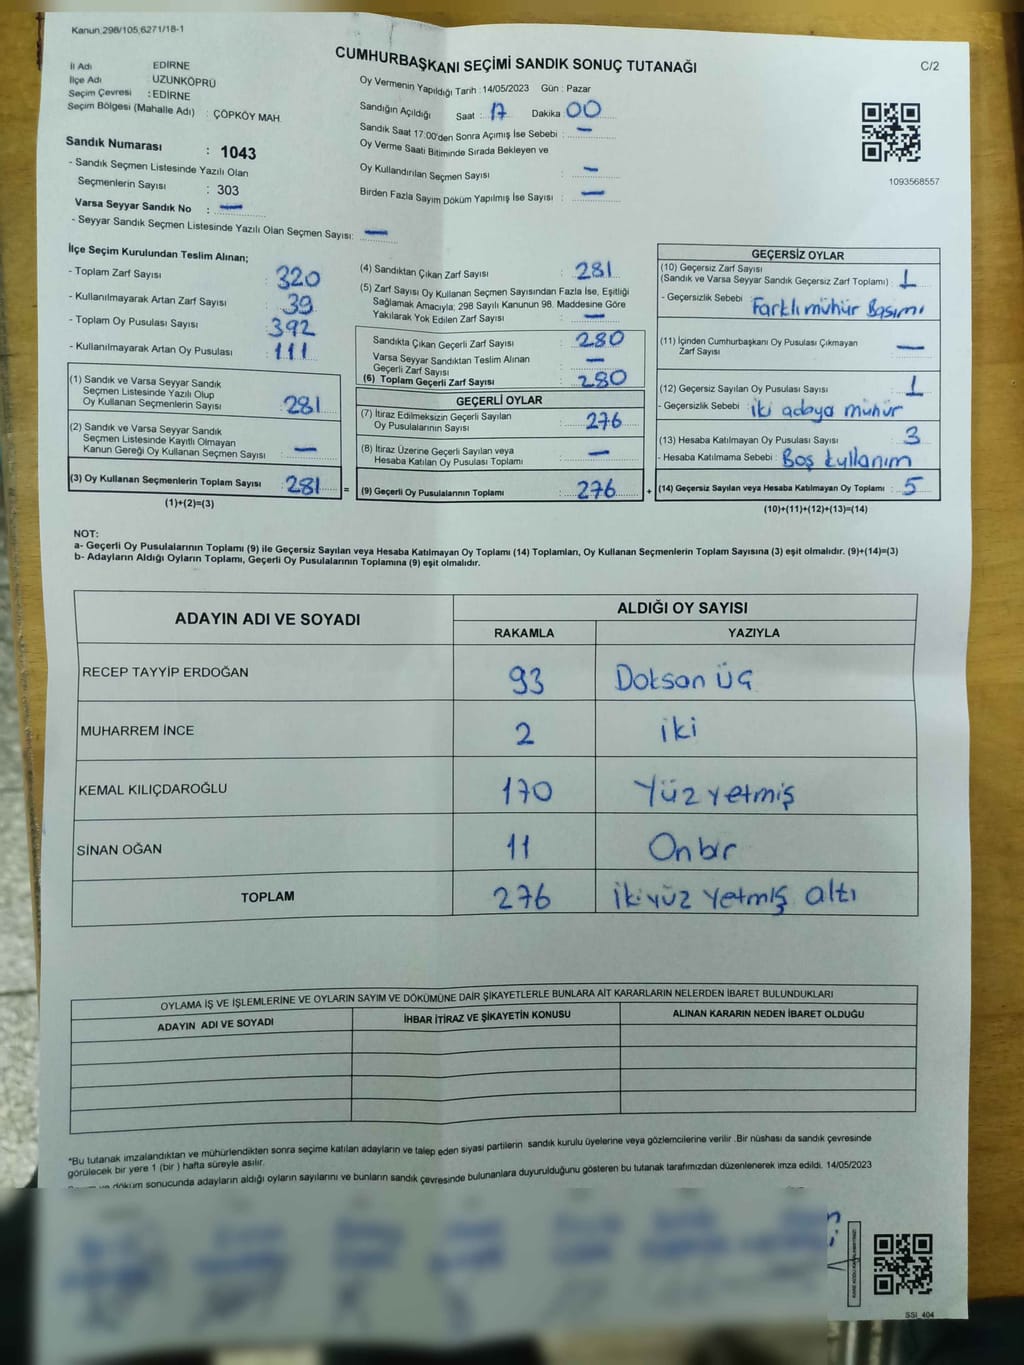 Kanun 298/105,6271/18-1
CUMHURBAŞKANI SEÇİMİ SANDIK SONUÇ TUTANAĞI
C/2
İl Adı EDİRNE
İlçe Adı UZUNKÖPRÜ
Seçim Çevresi : EDİRNE
Seçim Bölgesi (Mahalle Adı) : ÇÖPKÖY MAH.
Sandık Numarası : 1043
- Sandık Seçmen Listesinde Yazılı Olan
Seçmenlerin Sayısı : 303
Varsa Seyyar Sandık No : —
- Seyyar Sandık Seçmen Listesinde Yazılı Olan Seçmen Sayısı: —
Oy Vermenin Yapıldığı Tarih : 14/05/2023 Gün : Pazar
Sandığın Açıldığı Saat : 17 Dakika : 00
Sandık Saat 17:00'den Sonra Açımış İse Sebebi : —
Oy Verme Saati Bitiminde Sırada Bekleyen ve
Oy Kullandırılan Seçmen Sayısı : —
Birden Fazla Sayım Döküm Yapılmış İse Sayısı : —
1093568557
İlçe Seçim Kurulundan Teslim Alınan;
- Toplam Zarf Sayısı : 320
- Kullanılmayarak Artan Zarf Sayısı : 39
- Toplam Oy Pusulası Sayısı : 392
- Kullanılmayarak Artan Oy Pusulası : 111
(1) Sandık ve Varsa Seyyar Sandık
Seçmen Listesinde Yazılı Olup
Oy Kullanan Seçmenlerin Sayısı : 281
(2) Sandık ve Varsa Seyyar Sandık
Seçmen Listesinde Kayıtlı Olmayan
Kanun Gereği Oy Kullanan Seçmen Sayısı : —
(3) Oy Kullanan Seçmenlerin Toplam Sayısı : 281 =
(1)+(2)=(3)
(4) Sandıktan Çıkan Zarf Sayısı : 281
(5) Zarf Sayısı Oy Kullanan Seçmen Sayısından Fazla İse, Eşitliği
Sağlamak Amacıyla; 298 Sayılı Kanunun 98. Maddesine Göre
Yakılarak Yok Edilen Zarf Sayısı : —
Sandıkta Çıkan Geçerli Zarf Sayısı : 280
Varsa Seyyar Sandıktan Teslim Alınan
Geçerli Zarf Sayısı : —
(6) Toplam Geçerli Zarf Sayısı : 280
GEÇERLİ OYLAR
(7) İtiraz Edilmeksizin Geçerli Sayılan
Oy Pusulalarının Sayısı : 276
(8) İtiraz Üzerine Geçerli Sayılan veya
Hesaba Katılan Oy Pusulası Toplamı : —
(9) Geçerli Oy Pusulalarının Toplamı : 276 +
GEÇERSİZ OYLAR
(10) Geçersiz Zarf Sayısı
(Sandık ve Varsa Seyyar Sandık Geçersiz Zarf Toplamı) : 1
- Geçersizlik Sebebi : Farklı mühür Basımı
(11) İçinden Cumhurbaşkanı Oy Pusulası Çıkmayan
Zarf Sayısı : —
(12) Geçersiz Sayılan Oy Pusulası Sayısı : 1
- Geçersizlik Sebebi : iki adaya mühür
(13) Hesaba Katılmayan Oy Pusulası Sayısı : 3
- Hesaba Katılmama Sebebi : Boş kullanım
(14) Geçersiz Sayılan veya Hesaba Katılmayan Oy Toplamı : 5
(10)+(11)+(12)+(13)=(14)
NOT:
a- Geçerli Oy Pusulalarının Toplamı (9) ile Geçersiz Sayılan veya Hesaba Katılmayan Oy Toplamı (14) Toplamları, Oy Kullanan Seçmenlerin Toplam Sayısına (3) eşit olmalıdır. (9)+(14)=(3)
b- Adayların Aldığı Oyların Toplamı, Geçerli Oy Pusulalarının Toplamına (9) eşit olmalıdır.
ADAYIN ADI VE SOYADI ALDIĞI OY SAYISI
RAKAMLA YAZIYLA
RECEP TAYYİP ERDOĞAN 93 Doksan Üç
MUHARREM İNCE 2 iki
KEMAL KILIÇDAROĞLU 170 Yüz yetmiş
SİNAN OĞAN 11 On bir
TOPLAM 276 iki yüz yetmiş altı
OYLAMA İŞ VE İŞLEMLERİNE VE OYLARIN SAYIM VE DÖKÜMÜNE DAİR ŞİKAYETLERLE BUNLARA AİT KARARLARIN NELERDEN İBARET BULUNDUKLARI
ADAYIN ADI VE SOYADI İHBAR İTİRAZ VE ŞİKAYETİN KONUSU ALINAN KARARIN NEDEN İBARET OLDUĞU
*Bu tutanak imzalandıktan ve mühürlendikten sonra seçime katılan adayların ve talep eden siyasi partilerin sandık kurulu üyelerine veya gözlemcilerine verilir .Bir nüshası da sandık çevresinde
görülecek bir yere 1 (bir ) hafta süreyle asılır.
ve döküm sonucunda adayların aldığı oyların sayılarını ve bunların sandık çevresinde bulunanlara duyurulduğunu gösteren bu tutanak tarafımızdan düzenlenerek imza edildi. 14/05/2023
SSİ_404